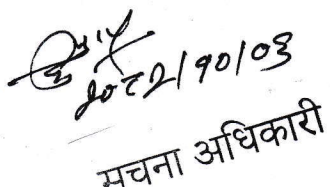 २०८२/१०/०३
सूचना अधिकारी